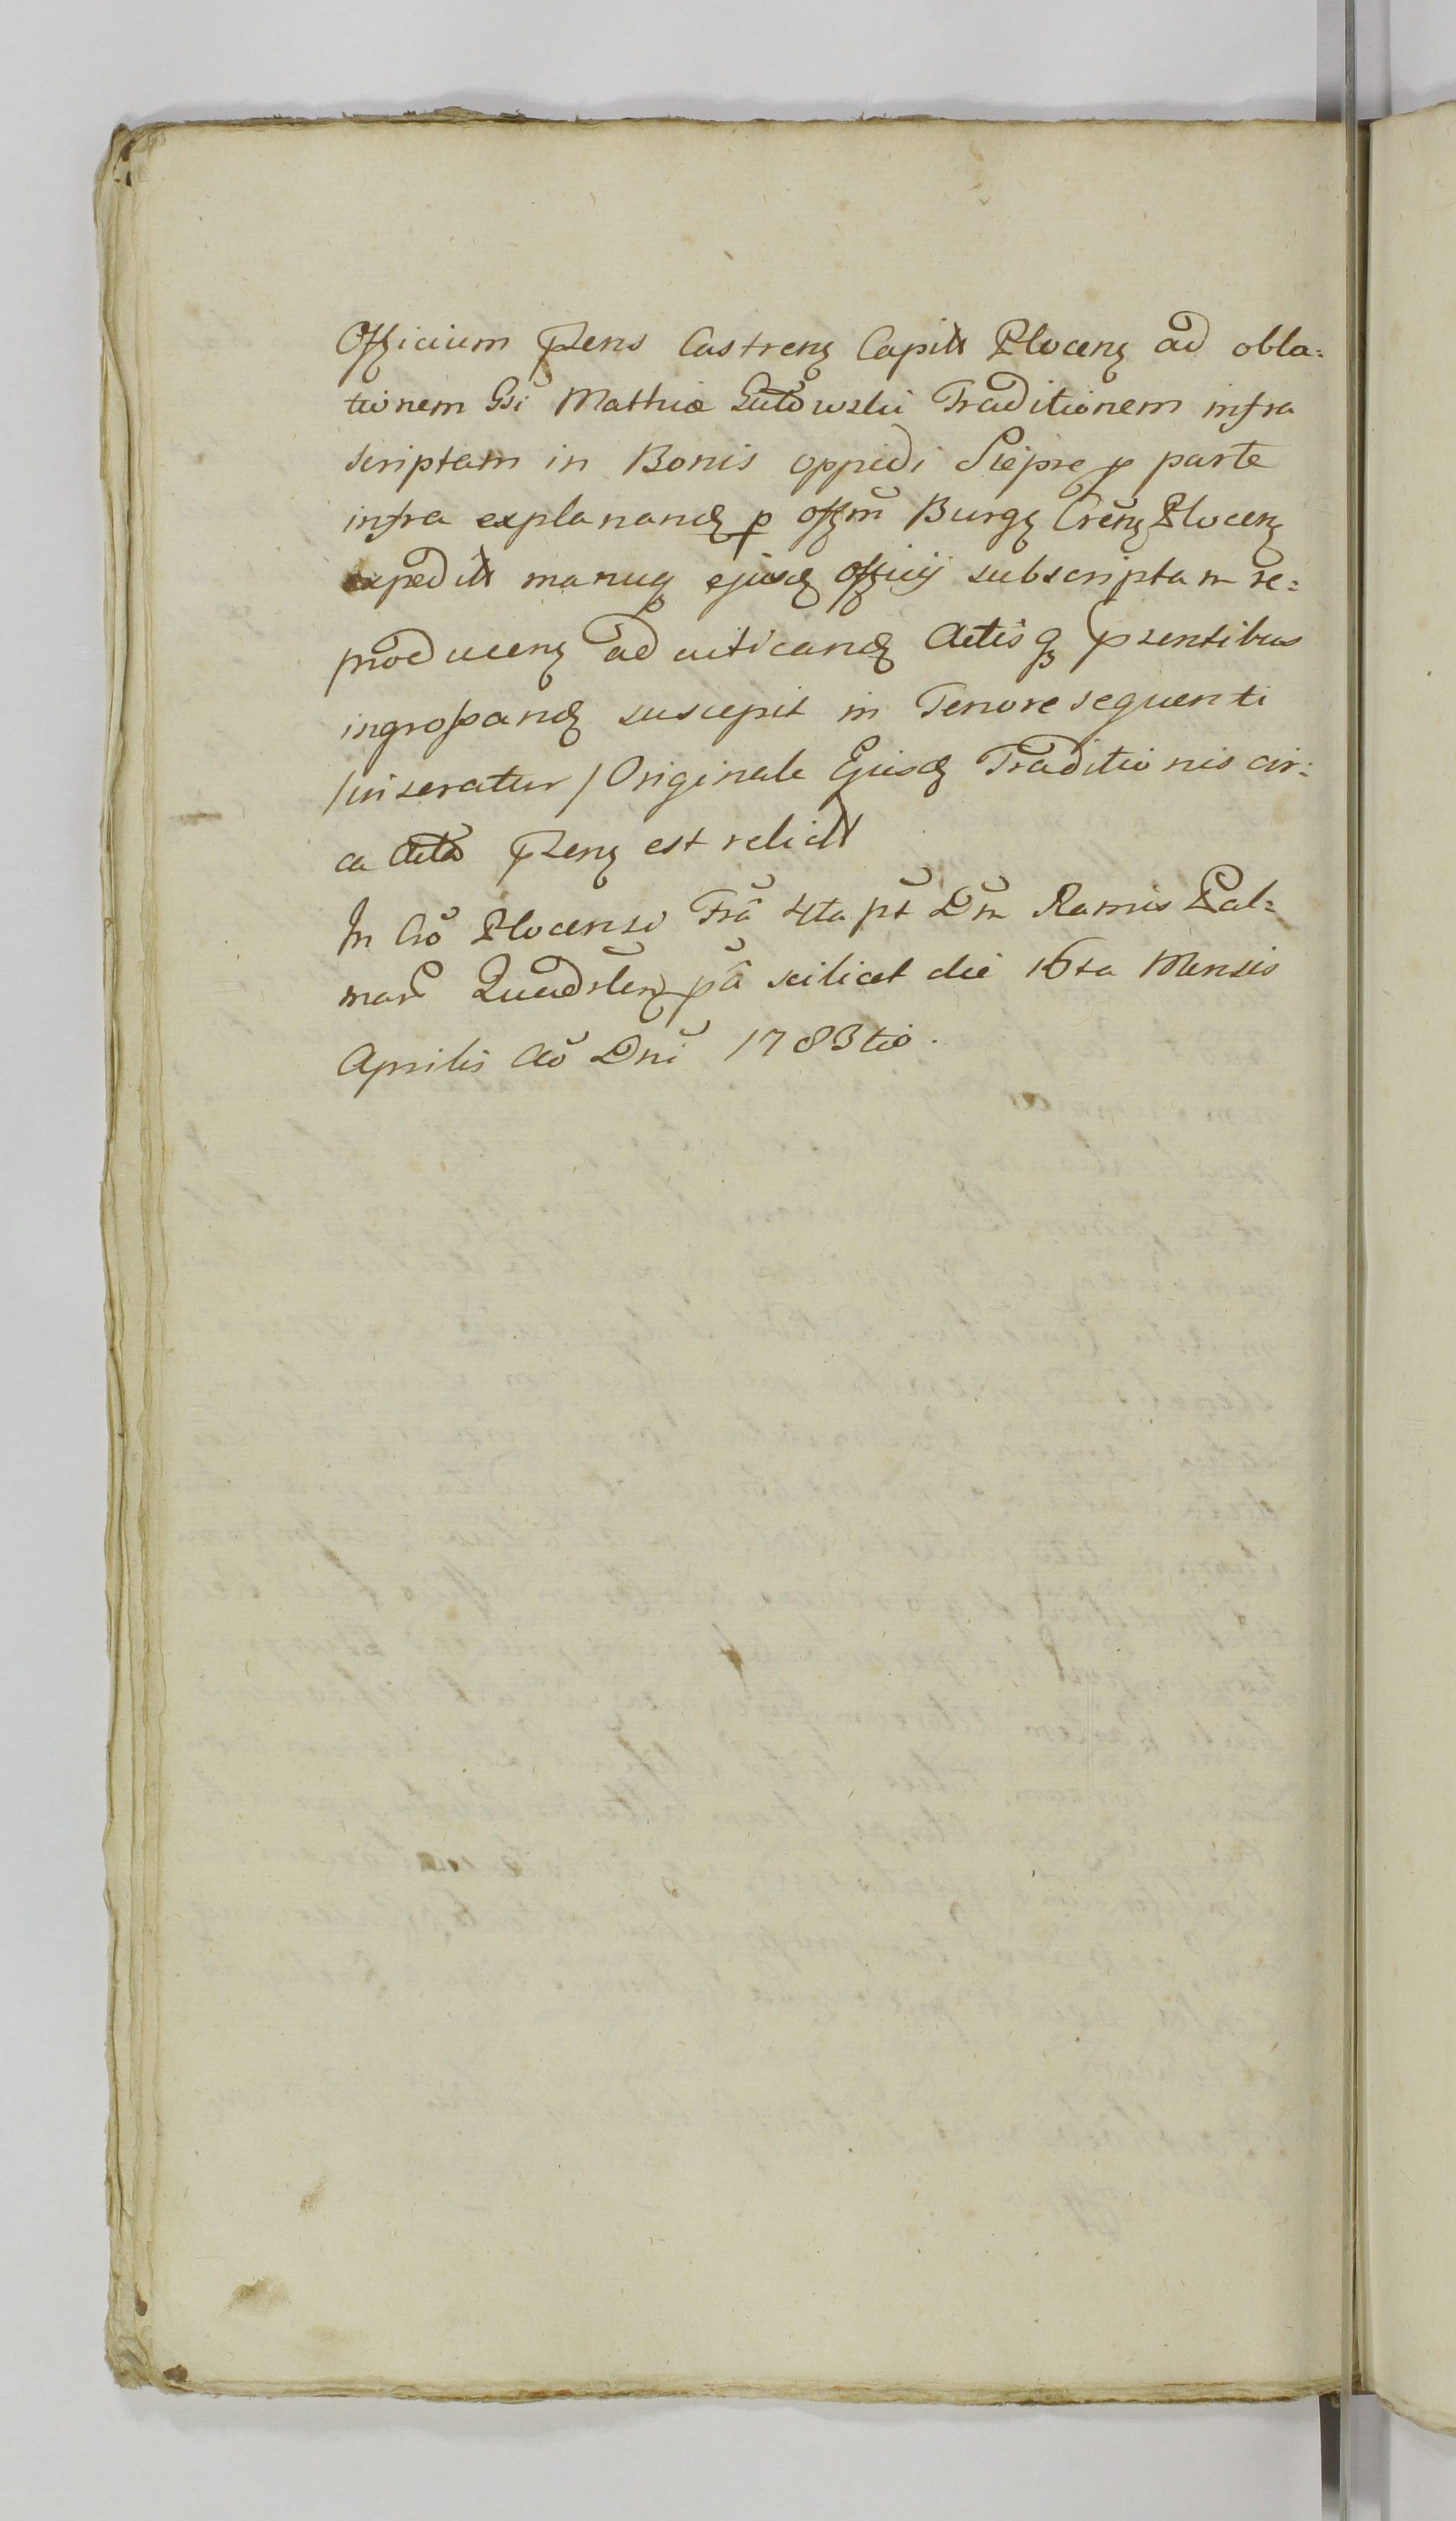 Officium pzens Castren Capitt Plocen ad obla=
tionem Gsi Mathiæ Gutowski Traditionem infra
scriptam in Bonis oppidi Sieprc p parte
infra explanand p offm Burg Cren Plocen
expeditt manuq ejusd officij subscriptam re=
producen ad uiticand Actisq pzentibus
ingrossand suscepit in Tenore sequenti
/inseratur/ Originale Ejusd Traditionis cir=
ca Acta pzen est relictt
In Cro Plocensi Fra 4ta pt Dm Ramis Pal=
mar Quadrlen pa scilicet die 16ta Mensis
Aprilis Ao Dni 1783tio.